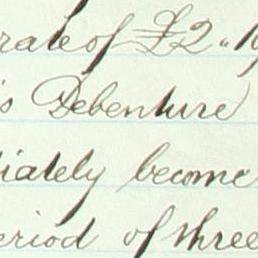 rate of £2 " 1
s Debenture
iately become
eriod of three